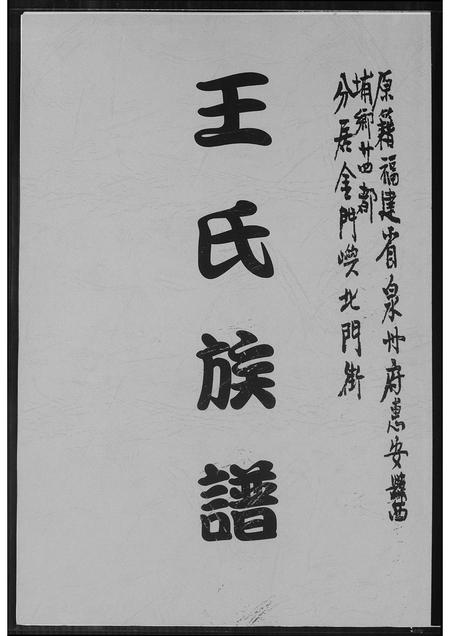 原籍福建省泉州府惠安縣西
埔鄉廿四都
分居金門㠘北門街
王氏族譜